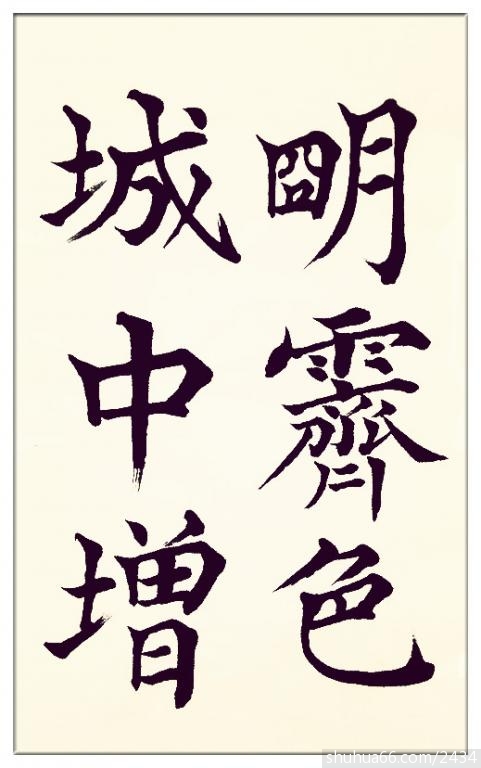 朙霽色
城中增
shuhua66.com/2434